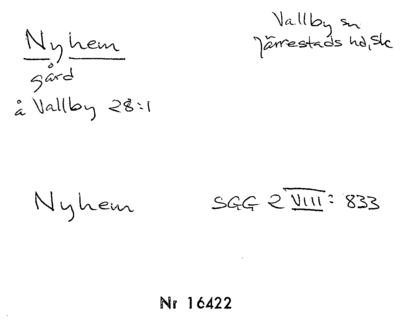 Nyhem
Vallby sn
Järrestads hd, Sk
gård
å Vallby 28:1
Nyhem
SGG 2 VIII: 833
Nr 16422